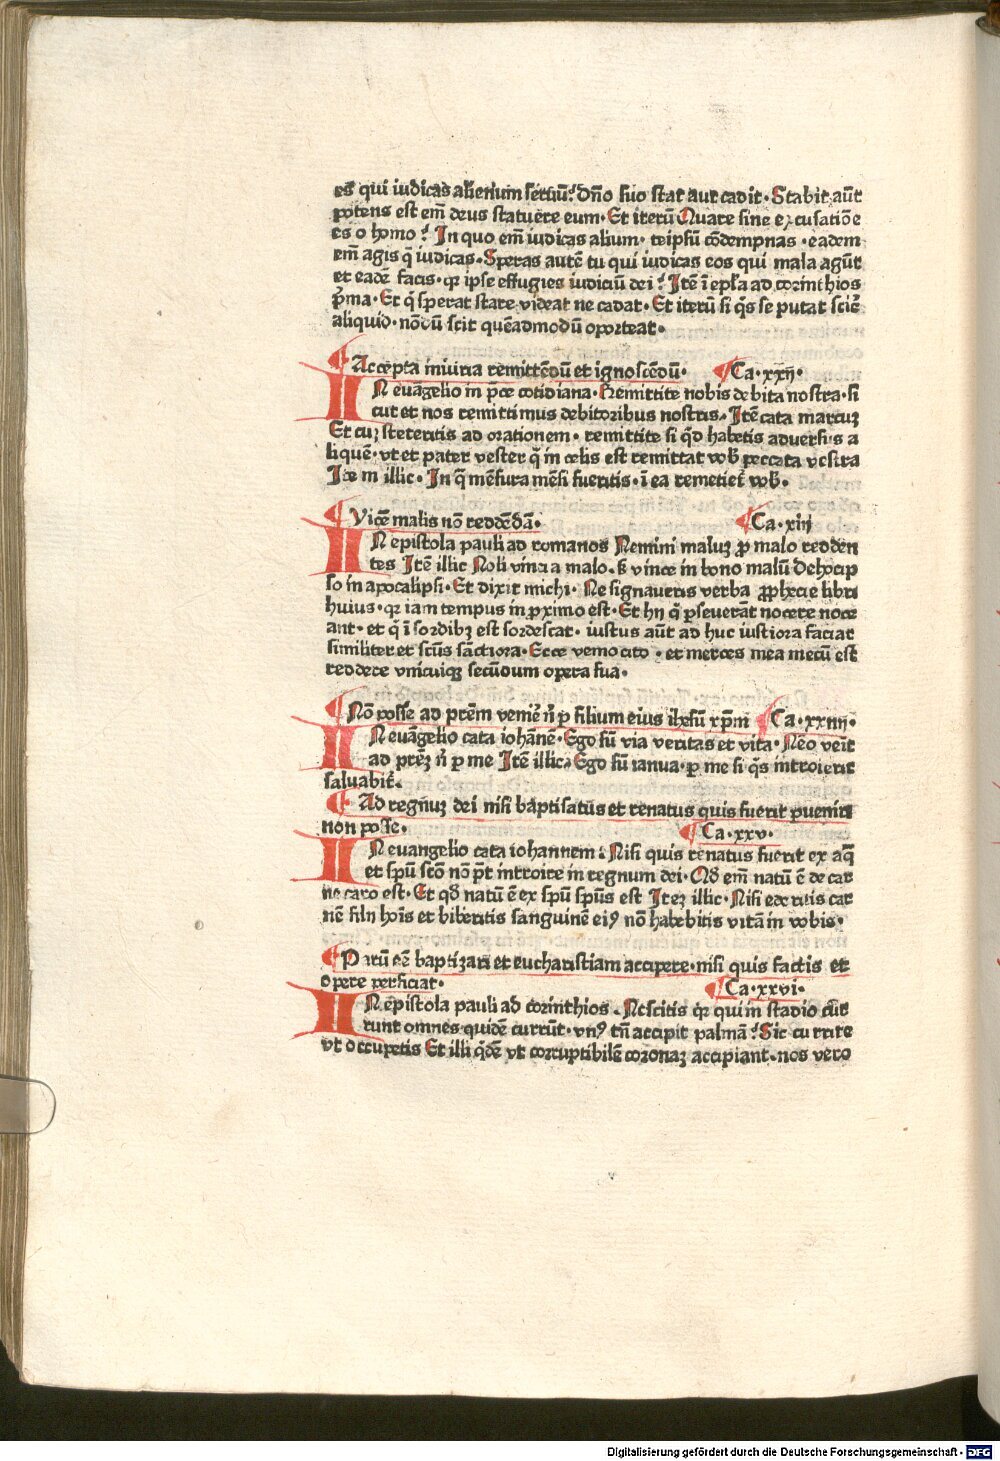 es qui iudicas alienum seruū? Dño suo stat aut cadit· Stabit aūt
potens est em̄ deus statuere eum· Et iterū Quare sine excusatiōe
es o homo? In quo em̄ iudicas alium· teipsū cōdempnas ·eadem
em̄ agis q̄ iudicas· Speras autē tu qui iudicas eos qui mala agūt
et eadē facis· qꝛ ipse effugies iudiciū dei? Itē ī ep̄la ad corinthios
p̄ma· Et q̄ sperat stare videat ne cadat· Et iterū si q̄s se putat scir̄
aliquid· nōdū scit quēadmodū oporteat·
Accepta iniuria remittēdū et ignoscēdū· Ca·xxij·
IN euāgelio in p̄ce cotidiana· Remittite nobis debita nostra· si
cut et nos remittimus debitoribus nostris· Itē cata marcuꝫ
Et cuꝫ steteritis ad orationem· remittite si q̄d habetis aduersus a
liquē· vt et pater vester q̄ in celis est remittat vob̄ peccata vestra
Ite m illic· In q̄ mēsura mēsi fueritis· ī ea remetiet̄ vob̄·
Vicē malis nō reddēdā· Ca·xiij
IN epistola pauli ad romanos Nemini maluꝫ ꝓ malo redden
tes Itē illic Noli vinci a malo· sꝫ vince in bono malū De hoc ip
so in apocalipsi· Et dixit michi· Ne signaueris verba ꝓphecie libri
huius· qꝛ iam tempus in ꝓximo est· Et hij q̄ ꝑseuerāt nocere noce
ant· et q̄ ī sordibꝫ est sordescat· iustus aūt ad huc iustiora faciat
similiter et scūs sāctiora· Ecce venio cito · et merces mea mecū est
reddere vnicuiqꝫ secūdum opera sua·
Nō posse ad prēm veniē n̄ ꝑ filium eius ihesū xp̄m Ca·xxiiij·
IN euāgelio cata iohānē· Ego sū via veritas et vita· Nēo veīt
ad prēꝫ n̄ ꝑ me Itē illic· Ego sū ianua· ꝑ me si q̄s introierit
saluabit̄·
Ad regnuꝫ dei nisi baptisatus et renatus quis fuerit ꝑuenire
non posse· Ca·xxv·
IN euangelio cata iohannem· Nisi quis renatus fuerit ex aq̄
et spū scō nō p̄t introire in regnum dei· Qd̄ em̄ natū ē de car
ne caro est· Et qd̄ natū ē ex spū spūs est Iteꝫ illic· Nisi ederitis car
nē filij hoīs et biberitis sanguinē eiꝰ nō habebitis vitā in vobis·
Parū eē baptizari et eucharistiam accipere· nisi quis factis et
opere perficiat· Ca·xxvi·
IN epistola pauli ad corinthios· Nescitis qꝛ qui in stadio cur
runt omnes quidē currūt· vnꝰ tn̄ accipit palmā? Sic currite
vt occupetis Et illi q̄dē vt corruptibilē coronaꝫ accipiant· nos vero
Digitalisierung gefördert durch die Deutsche Forschungsgemeinschaft - DFG